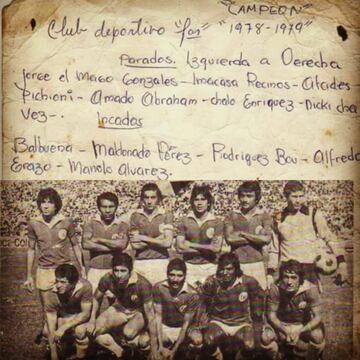 "CAMPEON"
Club deportivo "fas" "1978-1979"
Parados. Izquierda a Derecha
Jorge el Mago Gonzales - Imacasa Recinos - Alcides
Pichioni - Amado Abraham - chalo Enriquez - Nicki cha
vez -.
Incados
Balbuena - Maldonado Pérez - Rodriguez Bou - Alfredo
Erazo - Manolo Alvarez.